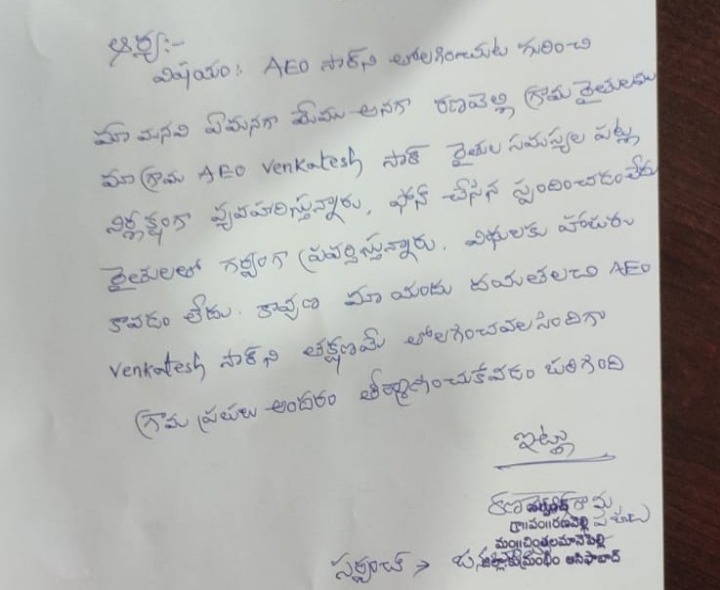 ఆర్య:-
విషయం: AEO సార్ ని తోలగించుట గురించి
మా మనవి ఏమనగా మేము అనగా రణవెల్లి గ్రామ రైతులము
మా గ్రామ AEO Venkatesh సార్ రైతుల సమస్యల పట్ల
నిర్లక్ష్యంగా వ్యవహరిస్తున్నారు, ఫోన్ చేసిన స్పందించడంలేదు
రైతులతో గర్వంగా ప్రవర్తిస్తున్నారు. విధులకు హాజరు
కావడం లేదు. కావున మా యందు దయతలచి AEO
Venkatesh సార్ ని తక్షణమే తోలగించవలసిందిగా
గ్రామ ప్రజలు అందరం తీర్మాణించుకోవడం జరిగింది
ఇట్లు
గ్రామ
సర్పంచ్
గ్రా॥పం॥రణవెల్లి ప్రజలు
మం॥చింతలమానేపల్లి
సర్పంచ్ → జిల్లా కుమ్రంభీం ఆసిఫాబాద్